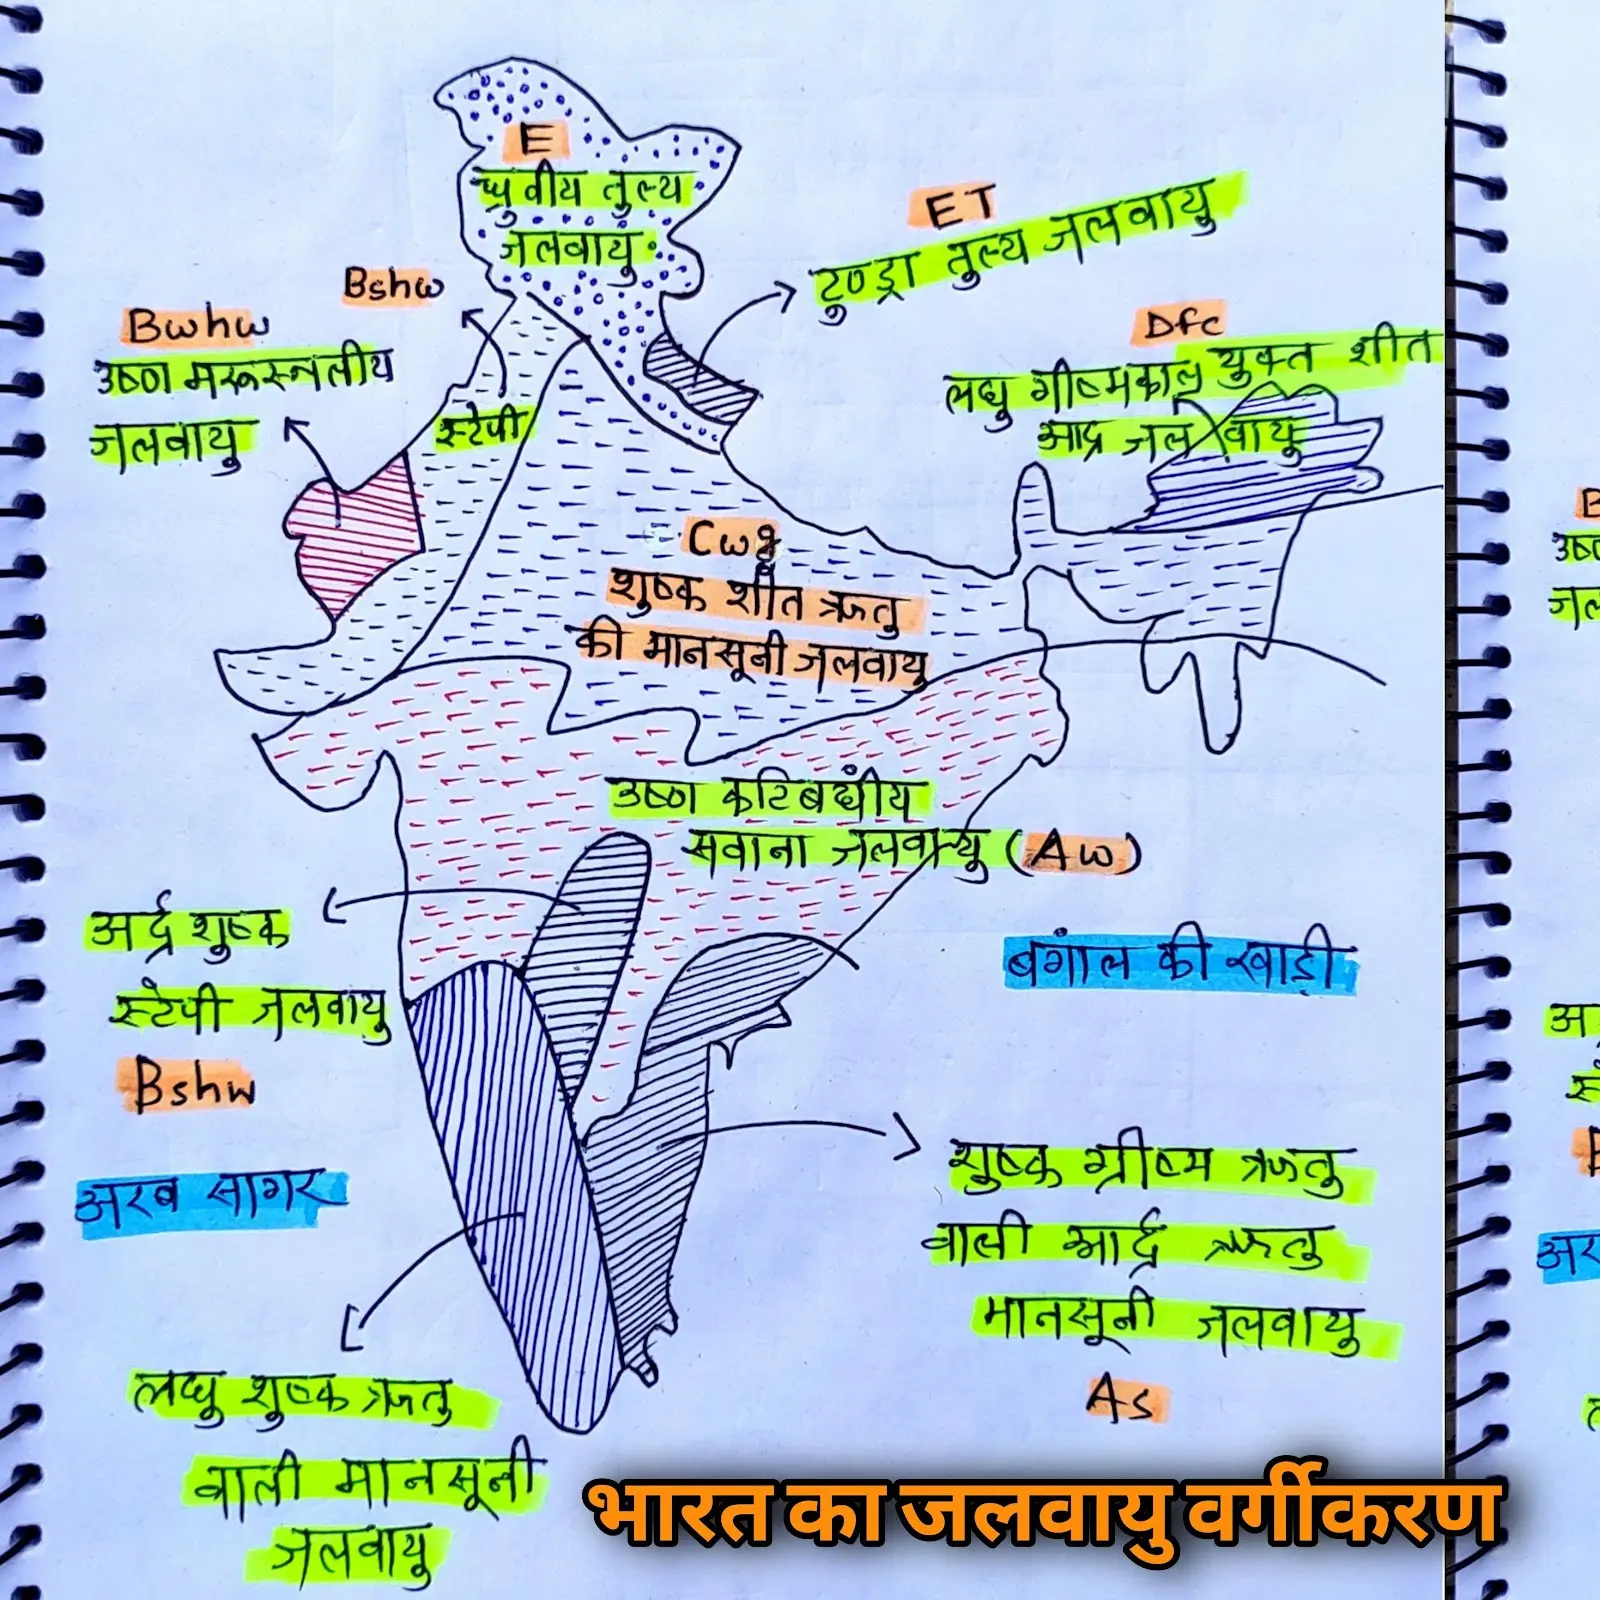 E
ध्रुवीय तुल्य
जलवायु
ET
टुण्ड्रा तुल्य जलवायु
Bshw
Bwhw
उष्ण मरूस्थलीय
जलवायु
स्टेपी
Dfc
लघु ग्रीष्मकाल युक्त शीत
आद्र जलवायु
Cwg
शुष्क शीत ऋतु
की मानसूनी जलवायु
उष्ण कटिबंधीय
सवाना जलवायु (Aw)
अर्द्र शुष्क
स्टेपी जलवायु
Bshw
बंगाल की खाड़ी
अरब सागर
शुष्क ग्रीष्म ऋतु
वाली आर्द्र ऋतु
मानसूनी जलवायु
As
लघु शुष्क ऋतु
वाली मानसूनी
जलवायु
भारत का जलवायु वर्गीकरण